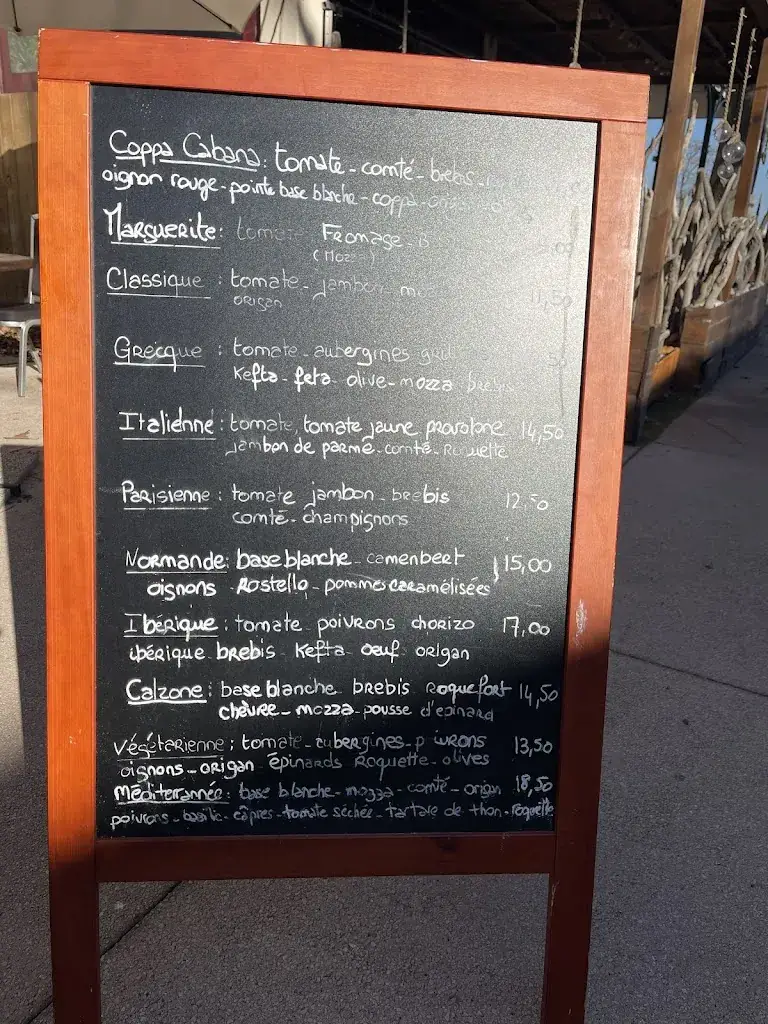 Coppa Cabana: tomate - comté - brebis -
oignon rouge - pointe base blanche - coppa -
Marguerite: tomate Fromage -
Classique : tomate - jambon -
origan 11,50
Grecque : tomate - aubergines
Kefta - feta olive - mozza brebis
Italienne : tomate, tomate jaune provolone 14,50
Jambon de parme - comté - Roquette
Parisienne : tomate jambon - brebis 12,50
comté - champignons
Normande: base blanche - camenbert 15,00
oignons Rostello - pommes caramélisées
Ibérique : tomate poivrons chorizo 17,00
ibérique brebis kefta oeuf origan
Calzone : base blanche brebis Roquefort 14,50
chèvre - mozza - pousse d'epinard
Végétarienne : tomate - aubergines - poivrons 13,50
oignons - origan épinards Roquette - olives
Méditerannée : base blanche - mozza - comté - origan 18,50
poivrons - basilic - câpres - tomate séchée - tartare de thon - roquette